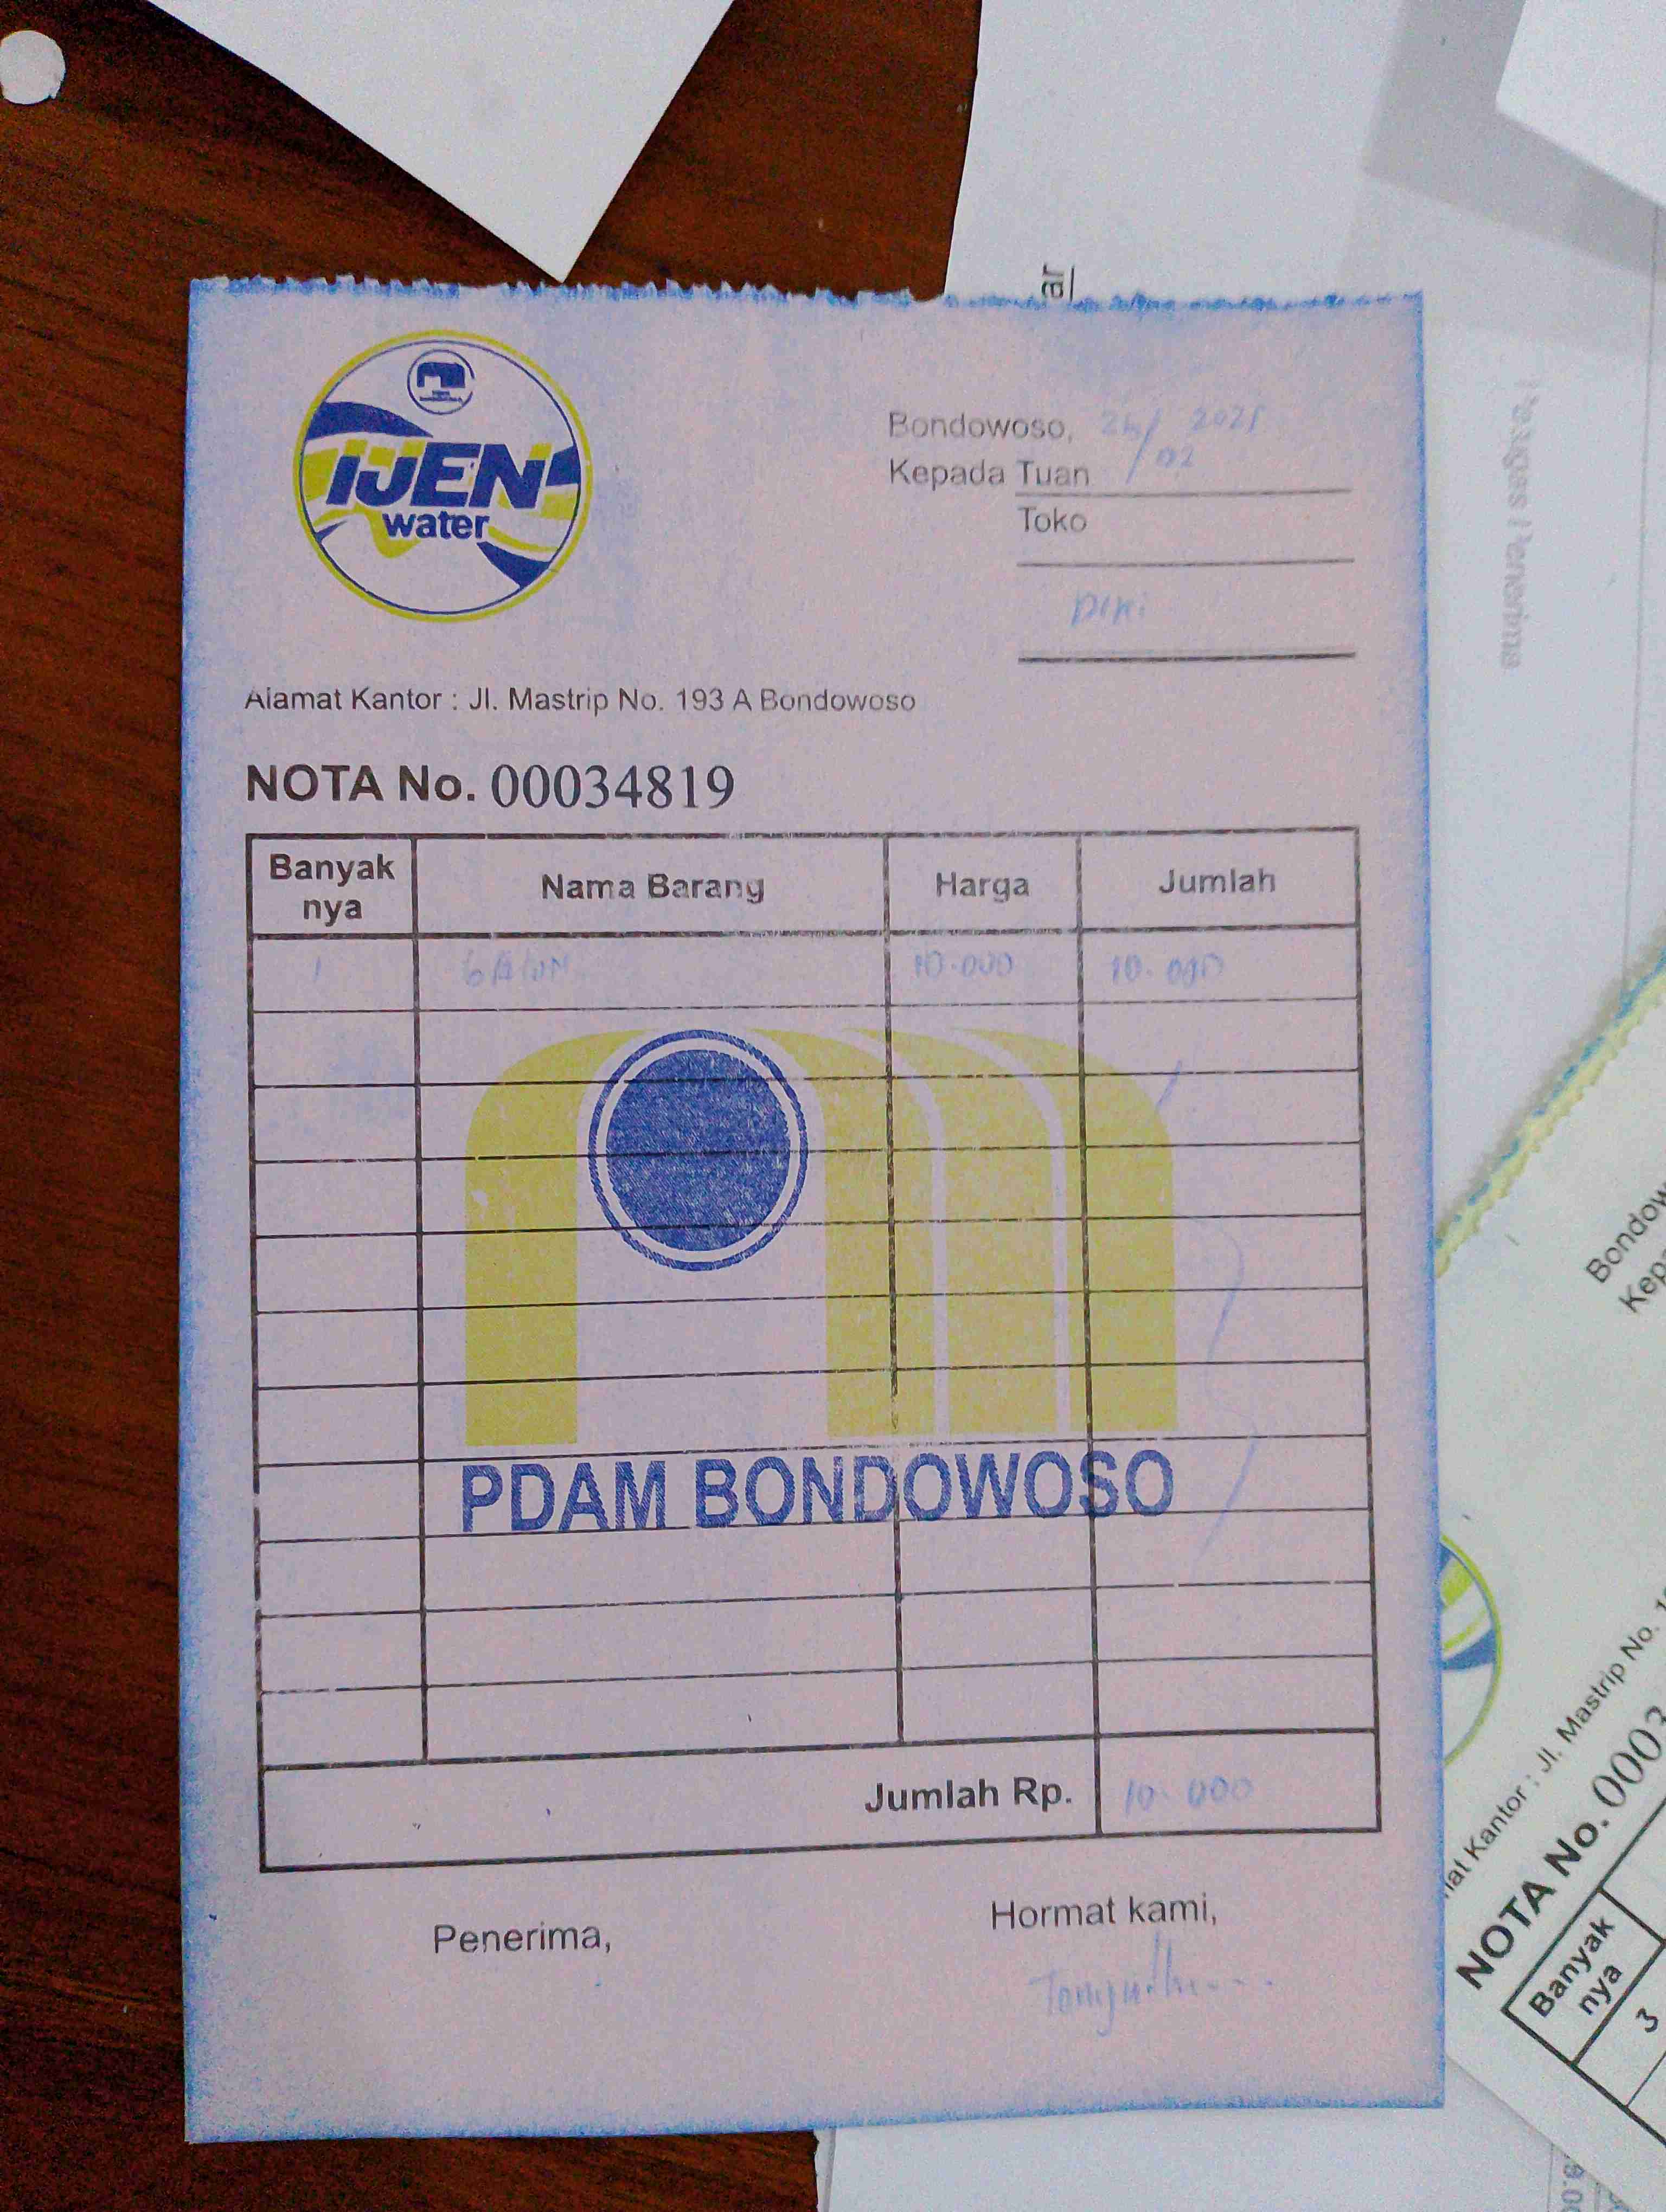 IJEN
water
Bondowoso, 2021
/02
Kepada Tuan
Toko
Diki
Alamat Kantor : Jl. Mastrip No. 193 A Bondowoso
NOTA No. 00034819
Banyak nya Nama Barang Harga Jumlah
1 galon 10.000 10.000
PDAM BONDOWOSO
Jumlah Rp. 10.000
Penerima,
Hormat kami,
ar
Petugas Penerima
Bondow
Kepa
mat Kantor : Jl. Mastrip No. 1
NOTA No. 0003
Banyak
nya
3